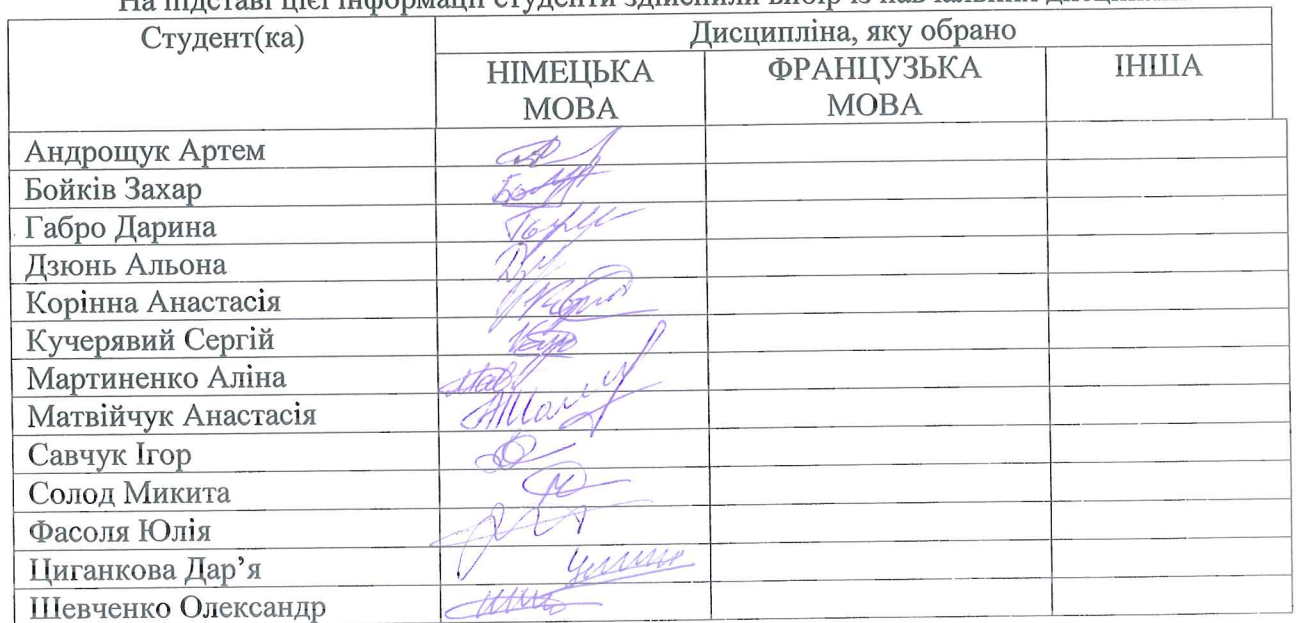 На підставі цієї інформації студенти здійснили вибір із навчальних дисциплін
Студент(ка)
Дисципліна, яку обрано
НІМЕЦЬКА
МОВА
ФРАНЦУЗЬКА
МОВА
ІНША
Андрощук Артем
Бойків Захар
Габро Дарина
Дзюнь Альона
Корінна Анастасія
Кучерявий Сергій
Мартиненко Аліна
Матвійчук Анастасія
Савчук Ігор
Солод Микита
Фасоля Юлія
Циганкова Дар’я
Шевченко Олександр